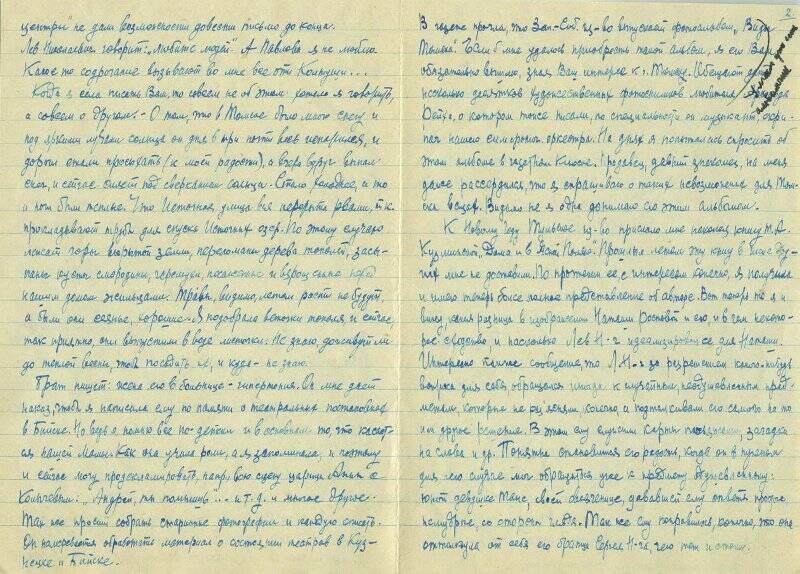 центры" не дали возможности довести письмо до конца.
Лев Николаевич говорит: „любите людей". А Павлова я не люблю.
Какое же содрогание вызывают во мне все эти Колтуши...
Когда я села писать Вам, то совсем не об этом хотела я говорить,
а совсем о другом. - О том, что в Томске было много снегу и
под яркими лучами солнца он дня в три почти весь испарился, и
дороги стали просыхать (к моей радости), а вчера вдруг выпал
снег, и сейчас сияет под сверкающим солнцем. Стало холоднее, и то
и топим теплые. Что Источная улица вся перерыта рвами, т.к.
прокладывают трубы для спуска Источных озер. По этому случаю
лежат горы вырытой земли, переломаны деревья тополей, засы-
паны кусты смородины, черемухи, посаженные и взрощенные перед
нашим домом жильцами. Травы, видимо, летом расти не будут,
а были они сеяные, хорошие. Я подобрала веточки тополя, и сейчас,
так приятно, они выпустили в воде листочки. Не знаю, дотянут ли
до теплой весны, чтоб посадить их, и куда - не знаю.
Брат пишет: жена его в больнице - гипертония. Он мне дает
наказ, чтоб я написала ему по памяти о театральных постановках
в Бийске. Но ведь я помню все по-детски и в основном то, что касает-
ся нашей Маши. Как она учила роли, а я запоминала, и поэтому
и сейчас могу продекламировать, напр., всю сцену царицы Анны с
Колычевым: „Андрей, ты помнишь"... и т.д. и многое другое.
Так же просит собрать старинные фотографии и каждую описать.
Он намеревается обработать материал о состоянии театров в Куз-
нецке и Бийске.
2
В газете прочла, что Зап.-Сиб. из-во выпускает фотоальбом „Виды
Томска". Если б мне удалось приобрести такой альбом, я его Вам
обязательно вышлю, зная Ваш интерес к г. Томску. Обещают дать
несколько десятков художественных фотоснимков любителя
о котором тоже писали, по специальности он музыкант, скри-
пач нашего симфонич. оркестра. На днях я попыталась спросить об
этом альбоме в газетном киоске. Продавец, давний знакомец, на меня
даже рассердился, что я спрашиваю о таких невозможных для Том-
ска вещах. Видимо не я одна донимаю его этим альбомом.
К Новому Году Тульское из-во прислало мне наконец книгу Т.А.
Кузминской „Дома и в Ясной Поляне". Прошлым летом эту книгу в числе дру-
гих мне не доставили. По прочтении ее, с интересом конечно, я получила
и имею теперь более полное представление об авторе. Вот теперь-то я и
вижу, какая разница в изображении Наташи Ростовой и его, и в чем некото-
рое сходство, и насколько Лев Н-ч идеализировал ее для Наташи.
Интересно также сообщение, что Л.Н-ч за разрешением какого-нибудь
вопроса для себя, обращался иногда к случайным, неодушевленным пред-
метам, которые не объясняли, конечно, и подталкивали его самого на то
или другое решение. В этом ему служили карты пасьянсные, загадки
на словах и др. Понятна становится его радость, когда он в нужном
для него случае мог обратиться уже к предмету одушевленному:
юной девушке Тане, своей свояченице, дававшей ему ответы прямые,
немудрые со стороны чувств. Так же ему понравилось, конечно, что она
оттолкнула от себя его братца Сергея Н-ча, чего тот и стоил.